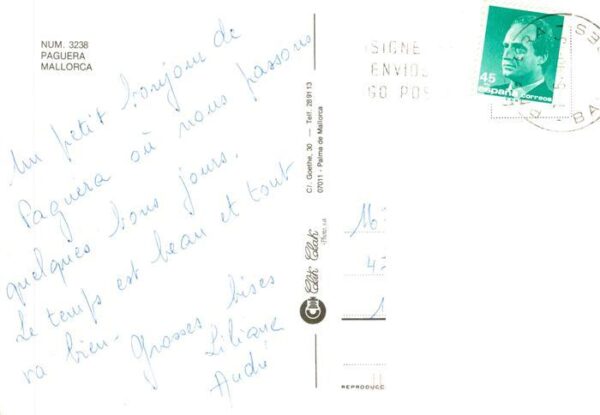 NUM. 3238
PAGUERA
MALLORCA
Un petit bonjour de
Paguera où nous passons
quelques bons jours.
Le temps est beau et tout
va bien - Grosses bises
Liliane
André
C/. Goethe, 30 — Telf. 28 91 13
07011 - Palma de Mallorca
Clik Clak
REPRODUCC
SIGNE
ENVIOS
GO POS
45
españa
correos
BA